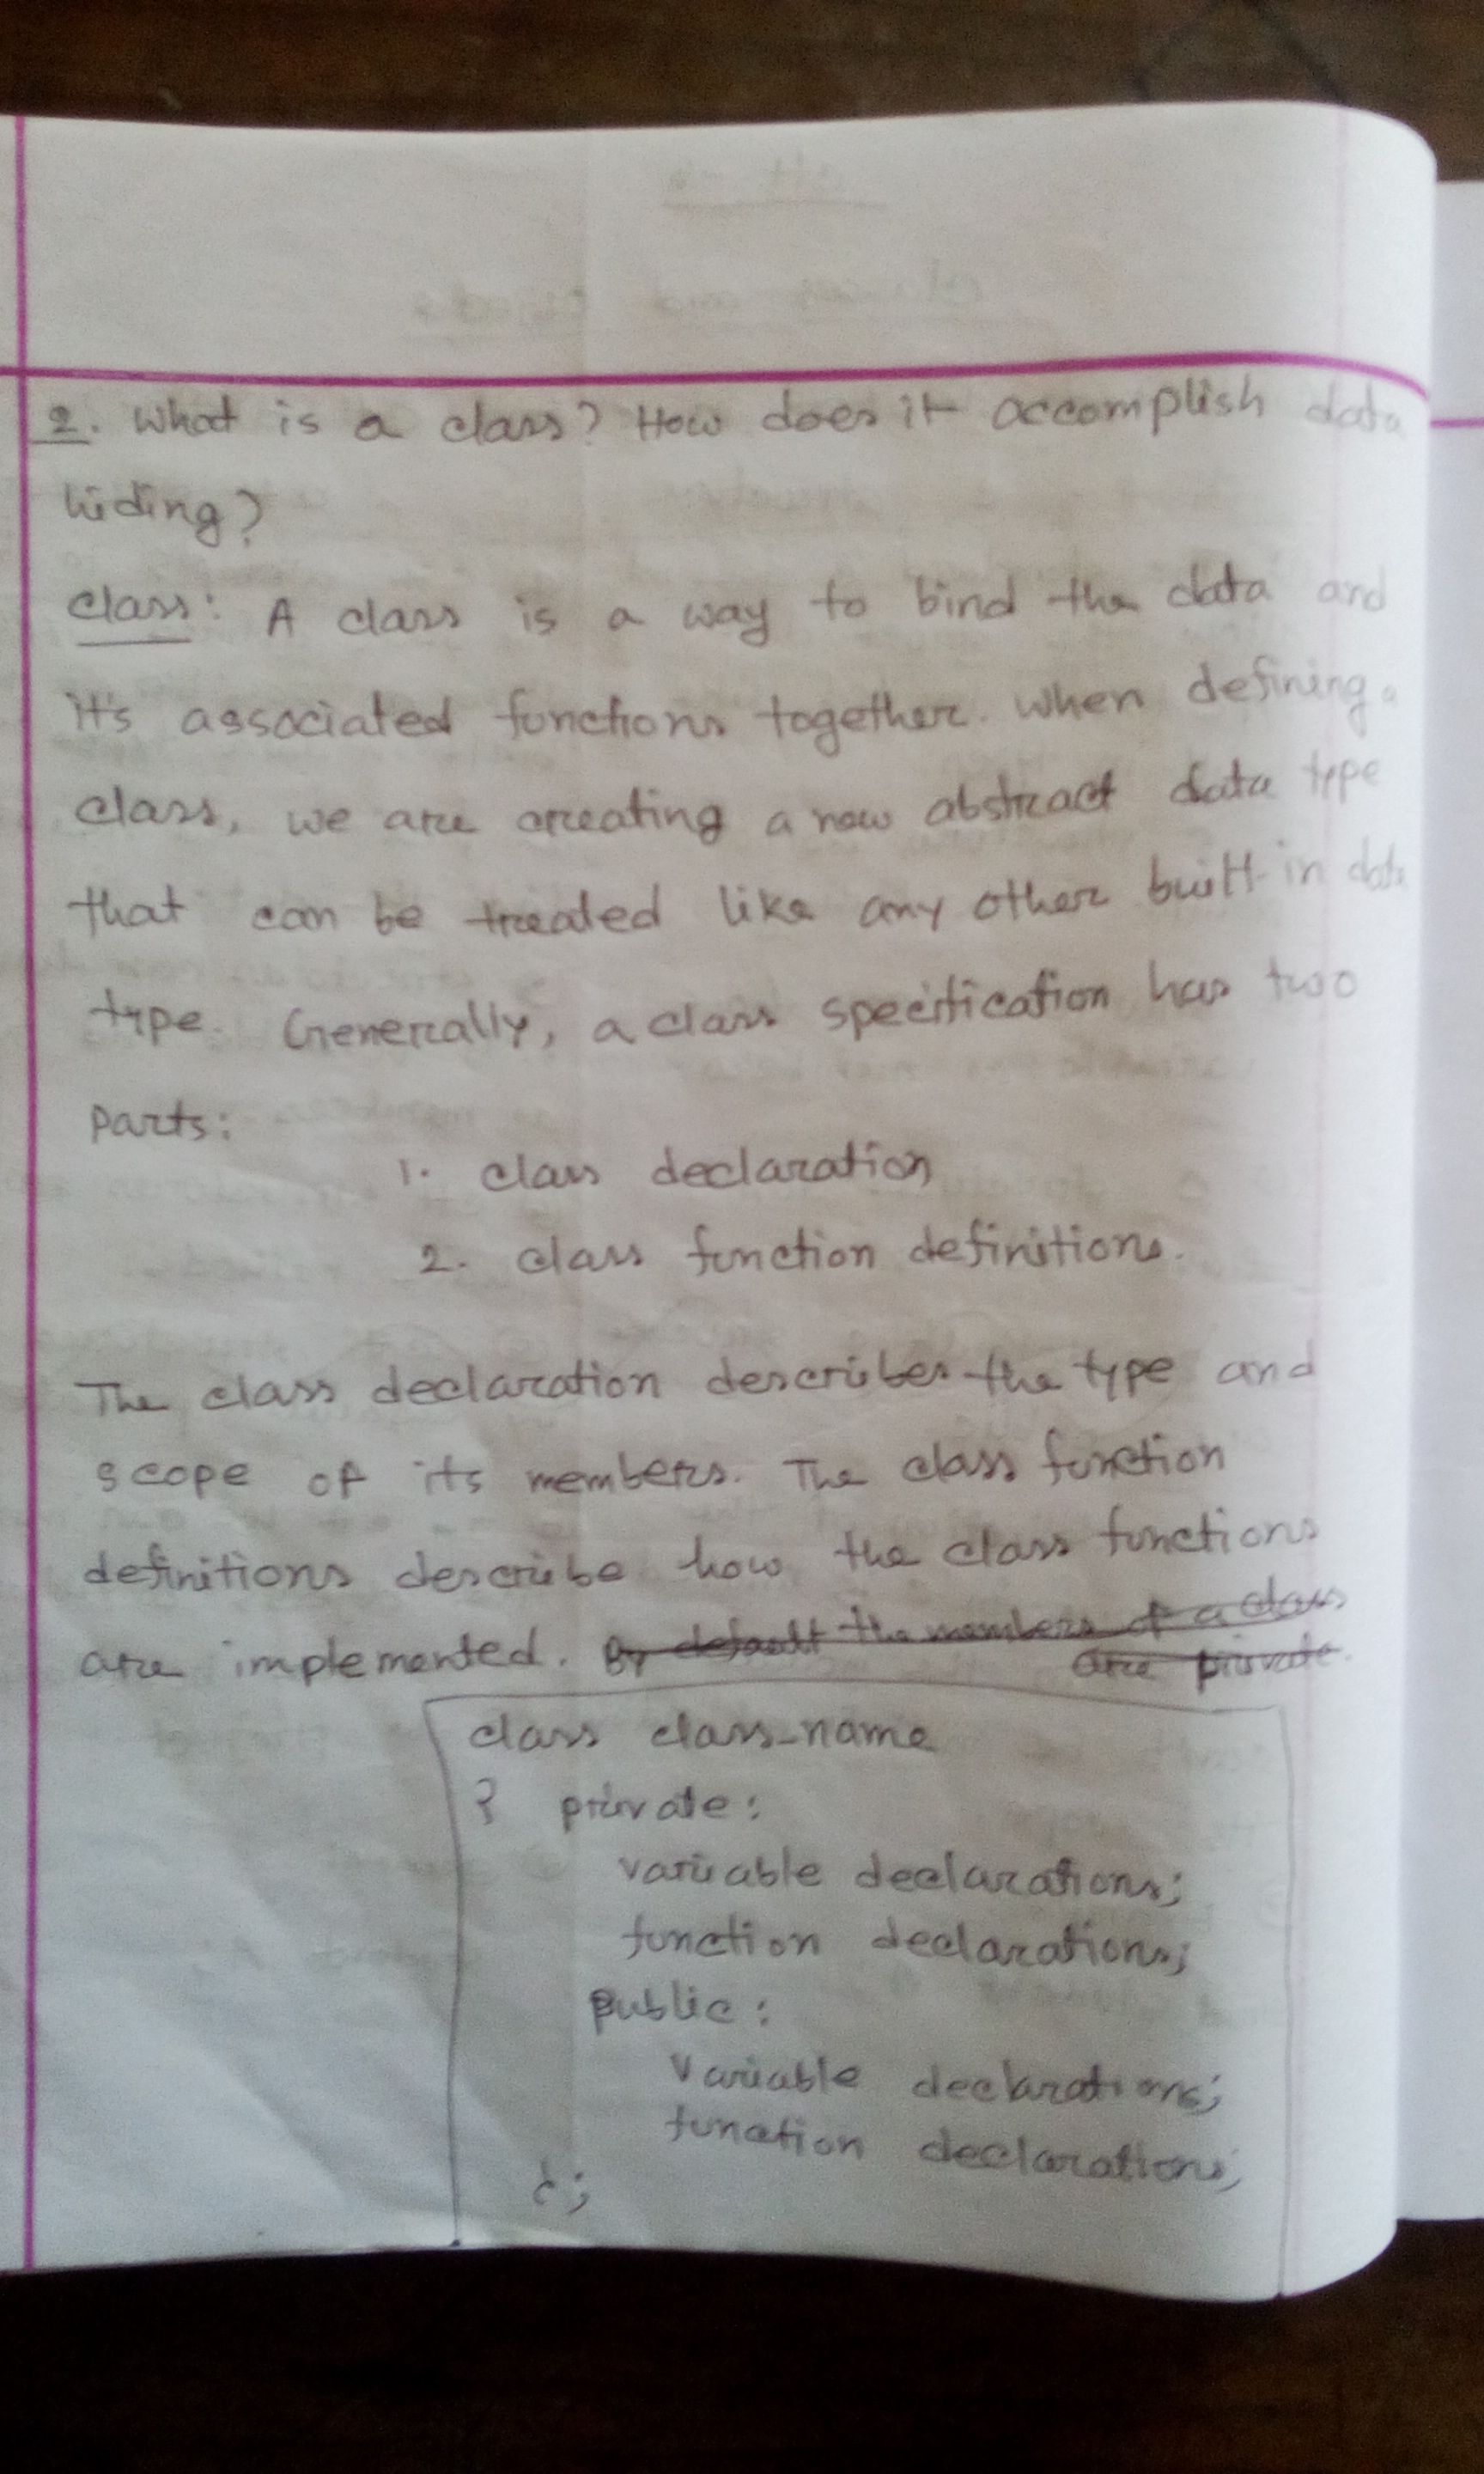 2. What is a class? How does it accomplish data
hiding?
class: A class is a way to bind the data and
it's associated functions together. When defining a
class, we are creating a new abstract data type
that can be treated like any other built-in data
type. Generally, a class specification has two
parts:
1. class declaration
2. class function definitions.
The class declaration describes the type and
scope of its members. The class function
definitions describe how the class functions
are implemented. By default the members of a class
are private.
class class-name
{ private:
variable declarations;
function declarations;
public:
variable declarations;
function declarations;
};